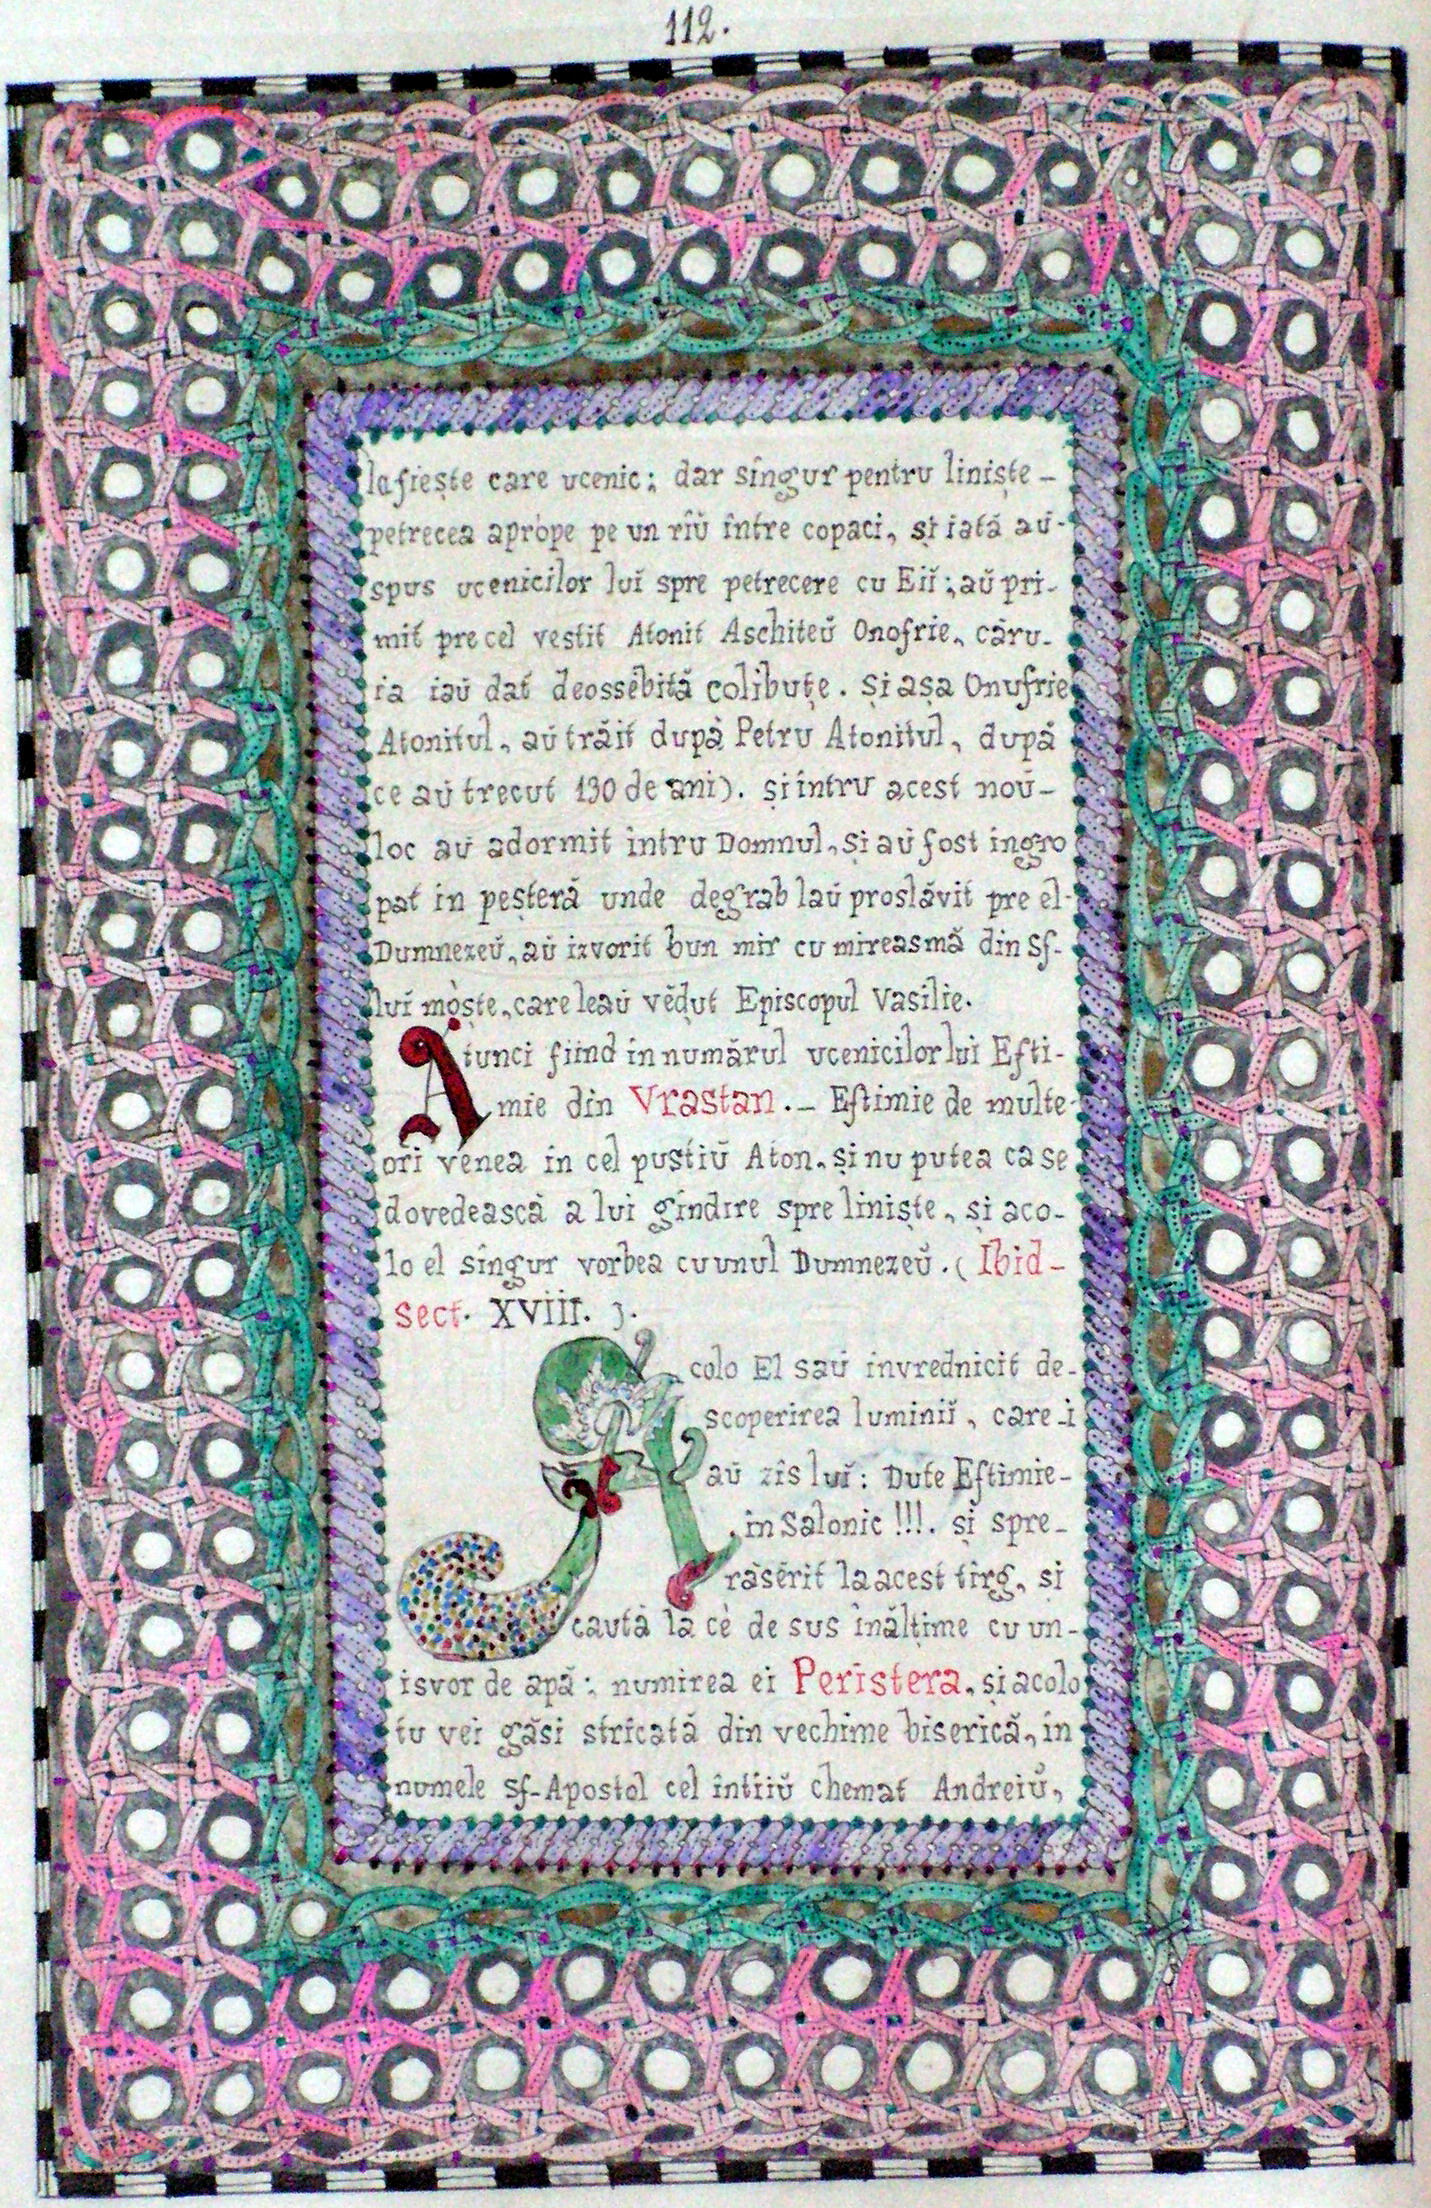 112.
la fiește care ucenic; dar sîngur pentru liniște-
petrecea aprópe pe un rîŭ între copaci, și iată aŭ-
spus ucenicilor luĭ spre petrecere cu Eiĭ; aŭ pri-
mit pre cel vestit Atonit Aschiteŭ Onofrie, căru-
ia iaŭ dat deossĕbită colibuțe. și așa Onufrie
Atonitul, aŭ trăit după Petru Atonitul, după
ce aŭ trecut 130 de ani). și întru acest noŭ-
loc aŭ adormit întru Domnul, și aŭ fost ingro
pat in peșteră unde degrab laŭ proslăvit pre el-
Dumnezeŭ, aŭ izvorit bun mir cu mireasmă din Sf-
luĭ móște, care leaŭ vĕḍut Episcopul Vasilie.
Atunci fiind in numărul ucenicilor lui Efti-
mie din Vrastan.- Eftimie de multe-
ori venea in cel pustiŭ Aton, și nu putea ca se
dovedească a lui gîndire spre liniște, și aco-
lo el sîngur vorbea cu unul Dumnezeŭ. (Ibid-
sect. XVIII. ).
Acolo El saŭ invrednicit de-
scoperirea luminiĭ, care-i
aŭ zis luĭ: Dute Eftimie-
in Salonic !!!. și spre-
răsĕrit la acest tîrg, și
caută la cè de sus înălțime cu un-
isvor de apă: numirea ei Peristera, și acolo
tu vei găsi stricată din vechime biserică, in
numele Sf-Apostol cel întîiŭ chemat Andreiŭ,